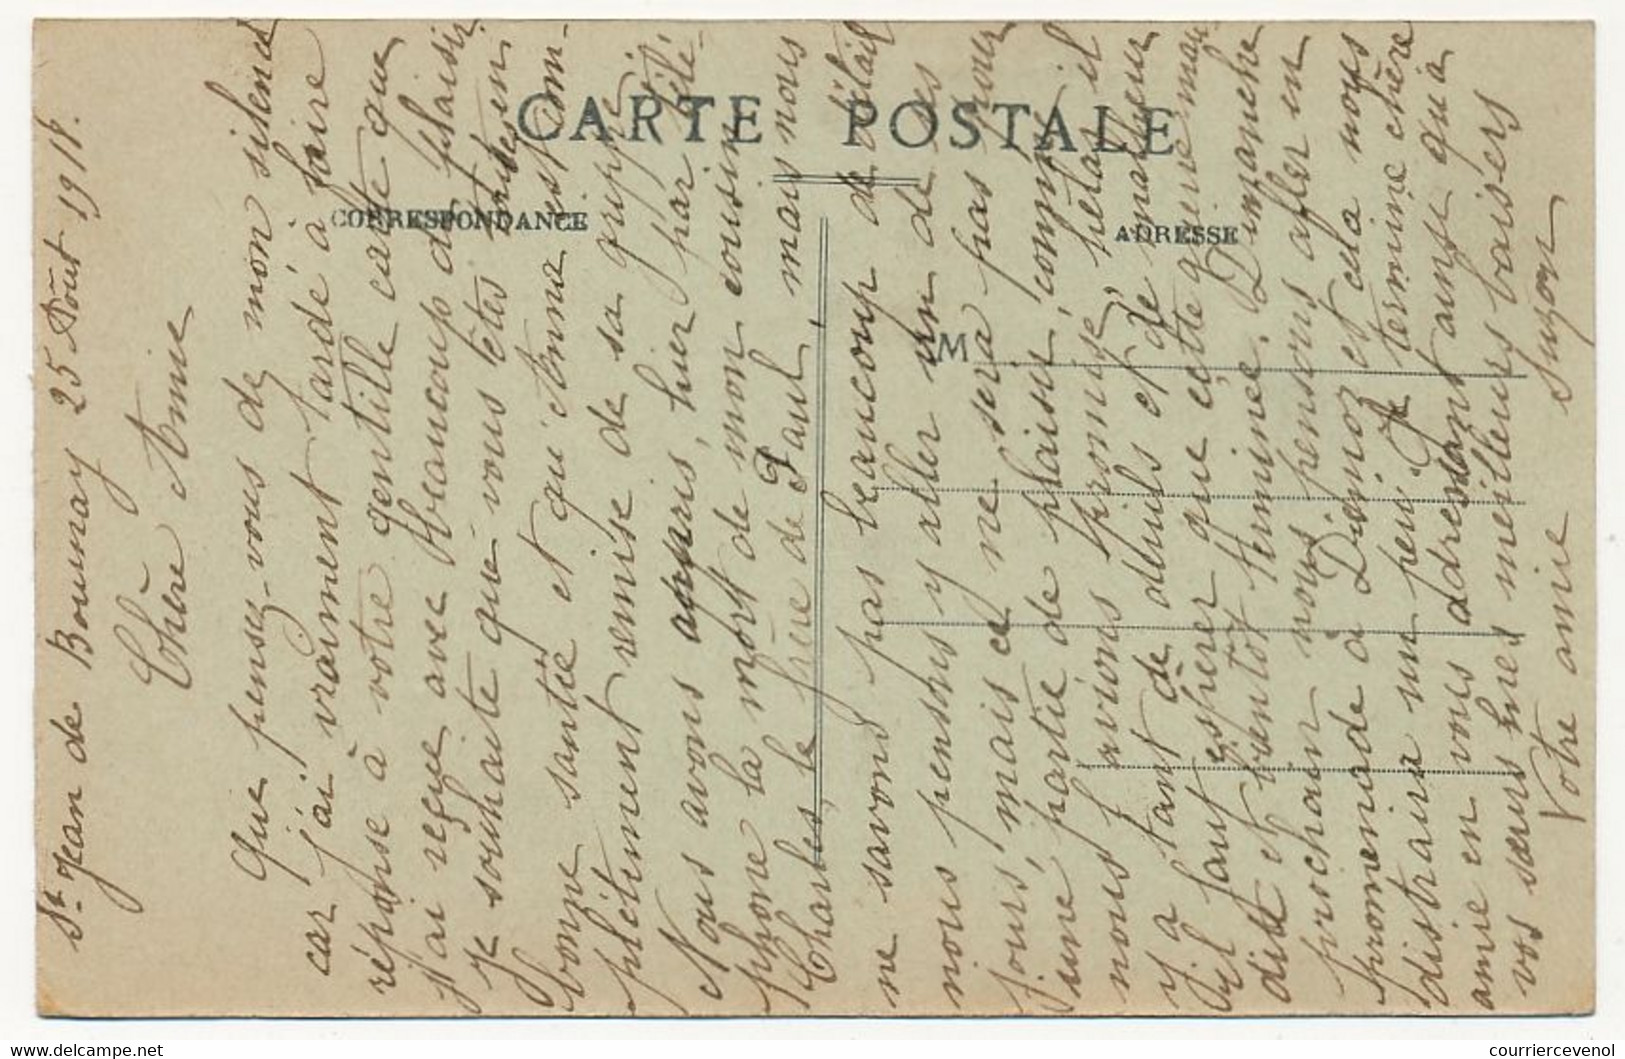 CARTE POSTALE
CORRESPONDANCE
ADRESSE
M
St Jean de Bournay 25 Août 1918.
Chère Amie
Que pensez-vous de mon silence
car j'ai vraiment tardé à faire
réponse à votre gentille carte que
j'ai reçue avec beaucoup de plaisir
Je souhaite que vous êtes toutes en
bonne santée et qu'Anna est com-
plètement remise de sa grippe.
Nous avons appris, hier par télé-
phone la mort de mon cousin
Charles, le frère de Paul, mais nous
ne savons pas beaucoup de détails
nous pensons y aller un de ces
jours, mais ce ne sera pas pour
une partie de plaisir, comme
nous l'avions promise, hélas il
y a tant de deuils et de malheur
Il faut espérer que cette guerre mau-
dite est bientôt terminée. Dimanche
prochain nous pensons aller en
promenade à Diémoz et cela nous
distraira un peu. Je termine chère
amie en vous adressant ainsi qu'à
vos sœurs mes meilleurs baisers
Votre amie Suzon
courriercevenol
delcampe.net